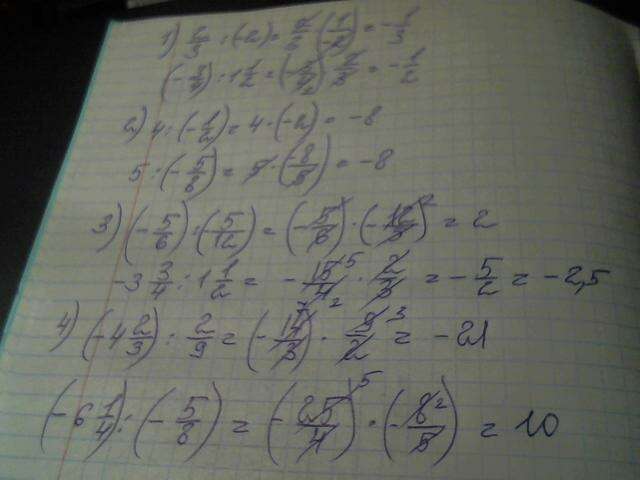 1) 2/3 : (-2) = 2/3 · (-1/2) = -1/3
(-3/4) : 1 1/2 = (-3/4) · 2/3 = -1/2
2) 4 : (-1/2) = 4 · (-2) = -8
5 : (-5/8) = 5 · (-8/5) = -8
3) (-5/6) : (5/12) = (-5/6) · (-12/5) 2 = 2
-3 3/4 : 1 1/2 = -15/4 5 2 · 2/3 = -5/2 = -2,5
4) (-4 2/3) : 2/9 = (-14/3) 7 · 9/2 3 = -21
(-6 1/4) : (-5/8) = (-25/4) 5 · (-8/5) 2 = 10